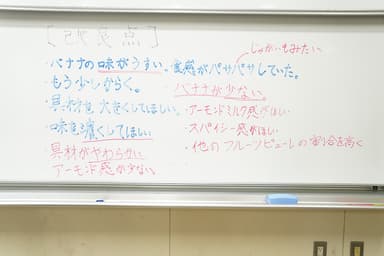 [改善点]
・バナナの味がうすい。
・もう少しからく。
・具材を大きくしてほしい。
・味を濃くしてほしい
・具材がやわらかい
アーモンド感が少ない。
じゃがいもみたい
・食感がパサパサしていた。
・バナナが少ない。
・アーモンドミルク感がほしい
・スパイシー感がほしい
・他のフルーツピューレの割合を高く